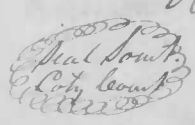 Seal Sout.
Coty Court